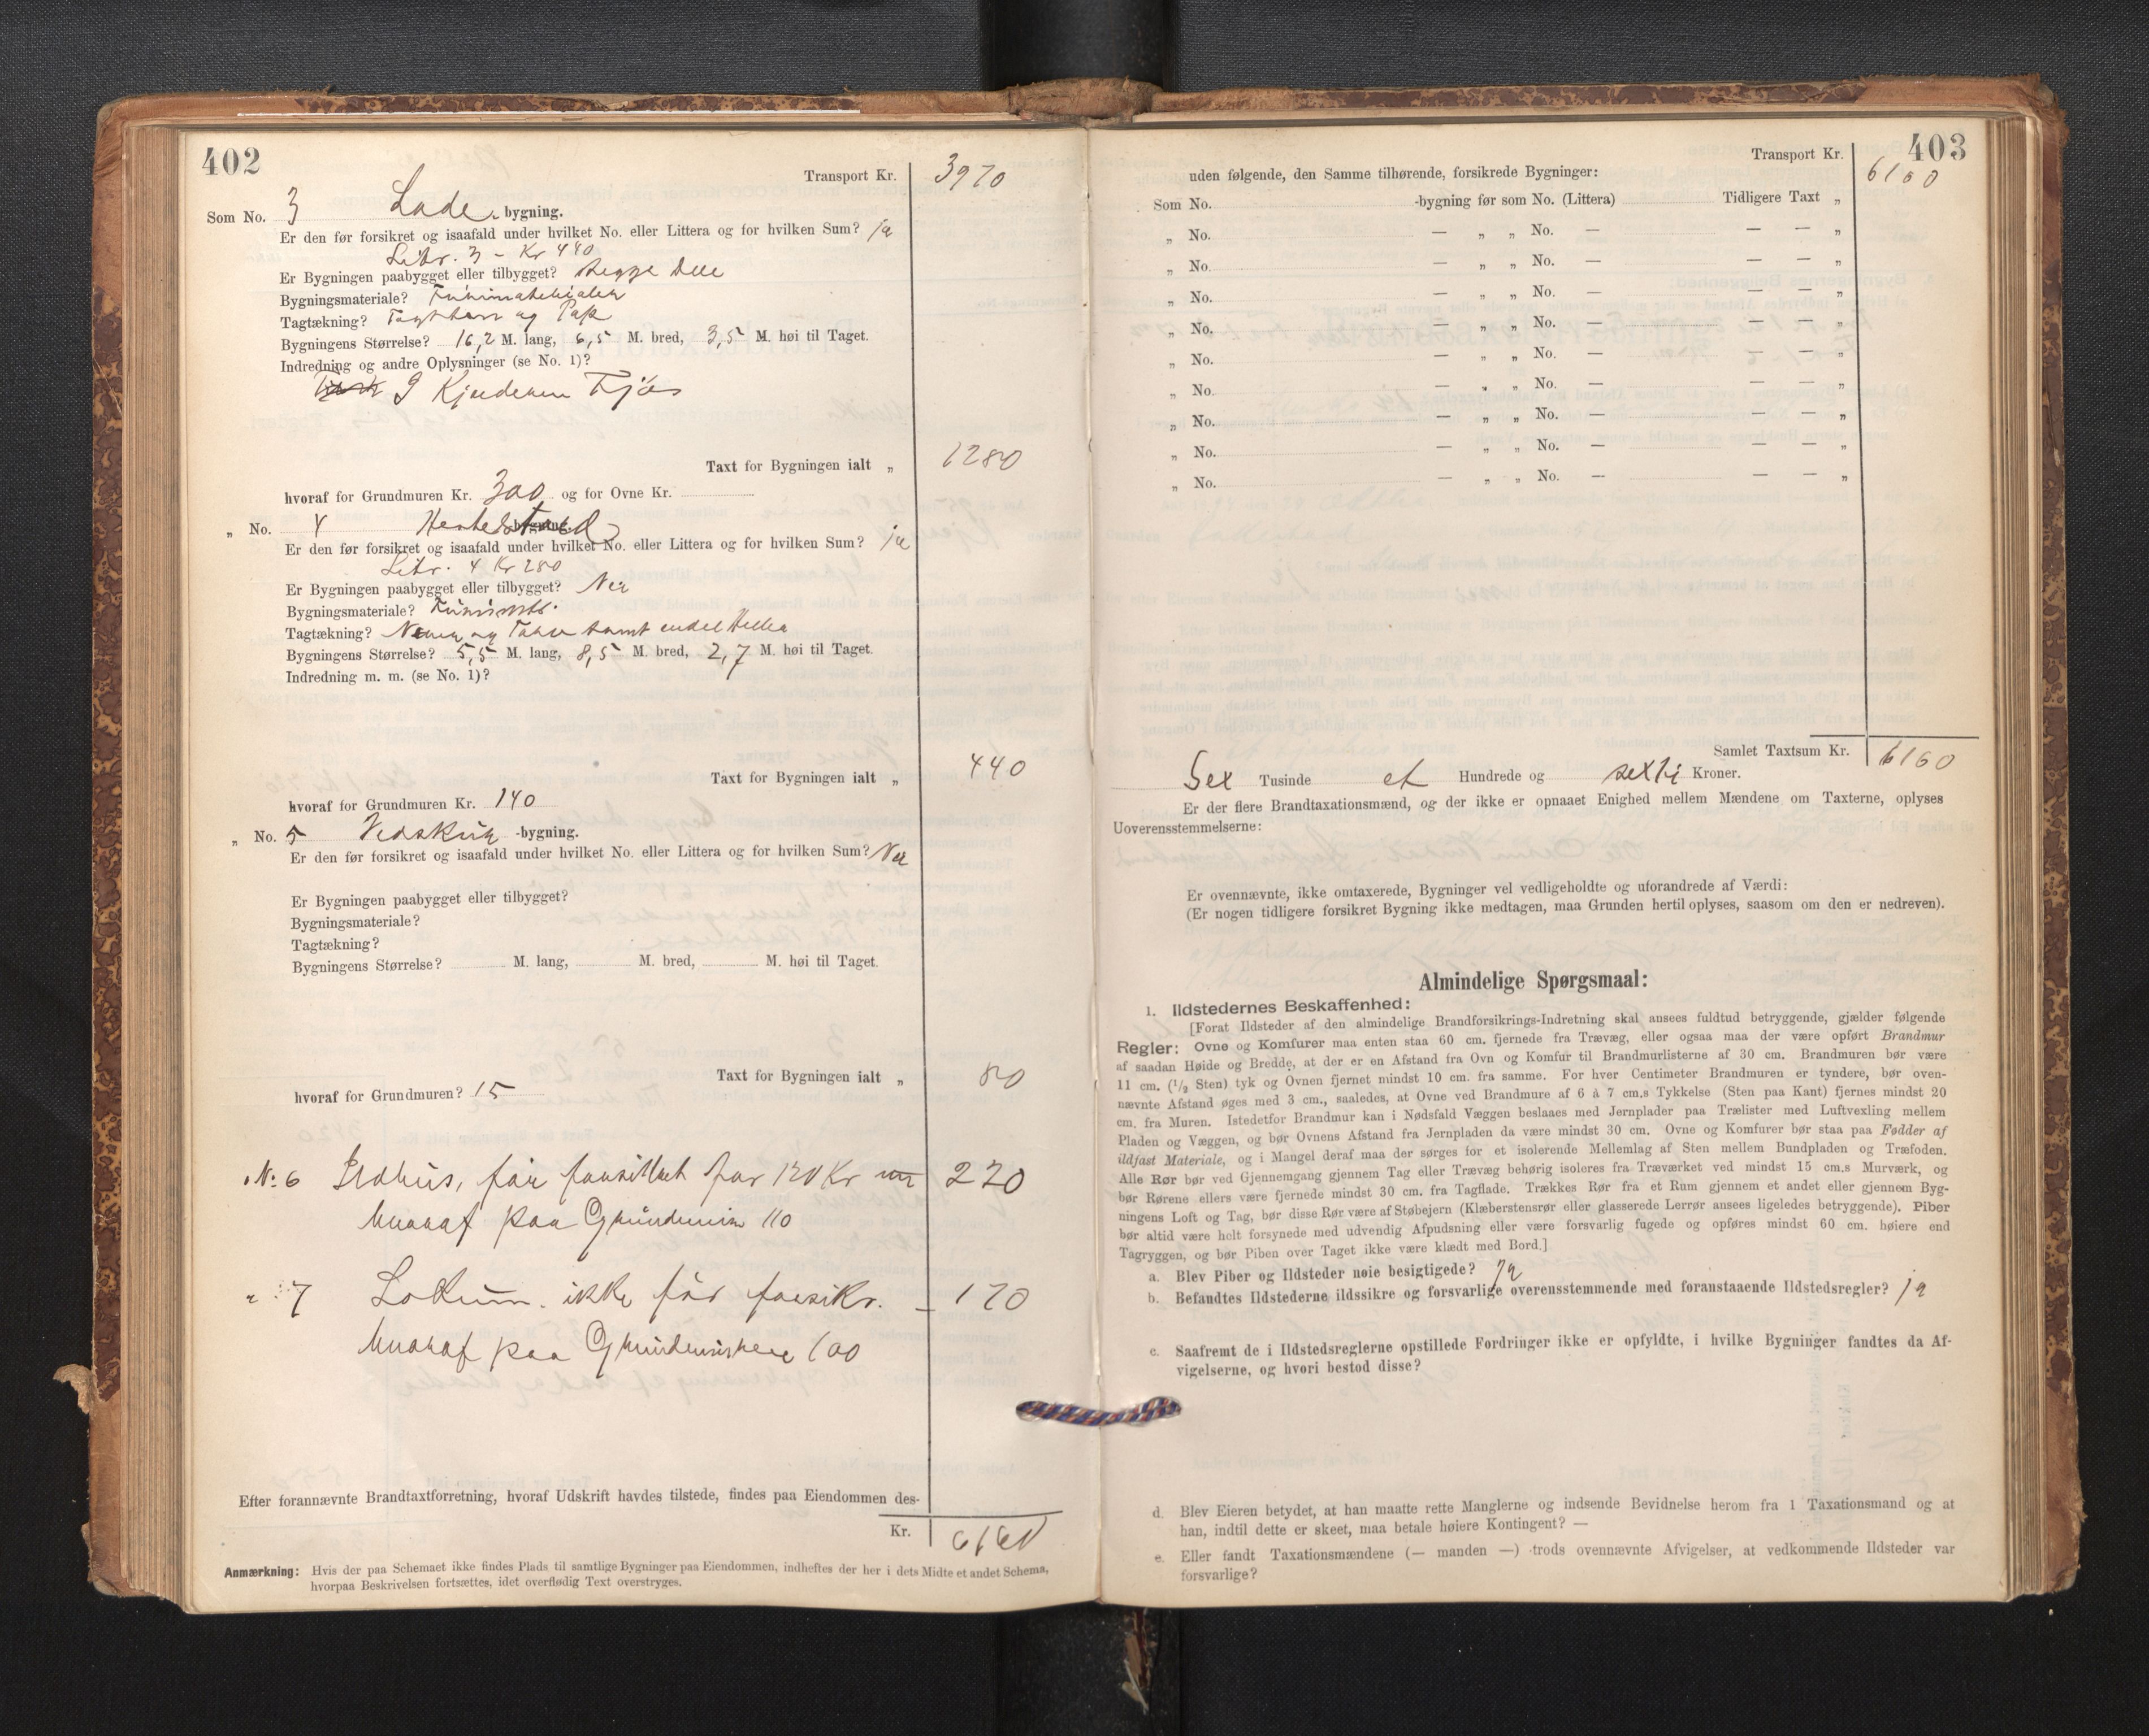 402
Transport Kr. 3970
Som No. 3 Lade bygning.
Er den før forsikret og isaafald under hvilket No. eller Littera og for hvilken Sum? ja
Litr. 3 – Kr 440
Er Bygningen paabygget eller tilbygget? begge Dele
Bygningsmateriale? Tømmer
Tagtækning? og Pap
Bygningens Størrelse? 16,2 M. lang, 6,5 M. bred, 3,5 M. høi til Taget.
Indredning og andre Oplysninger (se No. 1)?
I Kjælderen Fjøs
Taxt for Bygningen ialt „ 1280
hvoraf for Grundmuren Kr. 300 og for Ovne Kr.
„ No. 4 Hestestald bygning.
Er den før forsikret og isaafald under hvilket No. eller Littera og for hvilken Sum? ja
Litr. 4 Kr 280
Er Bygningen paabygget eller tilbygget? Nei
Bygningsmateriale?
Tagtækning? Never og Torv samt endel Heller
Bygningens Størrelse? 5,5 M. lang, 8,5 M. bred, 2,7 M. høi til Taget.
Indredning m. m. (se No. 1)?
Taxt for Bygningen ialt „ 440
hvoraf for Grundmuren Kr. 140
„ No. 5 Vedskur -bygning.
Er den før forsikret og isaafald under hvilket No. eller Littera og for hvilken Sum? Nei
Er Bygningen paabygget eller tilbygget?
Bygningsmateriale?
Tagtækning?
Bygningens Størrelse? M. lang, M. bred, M. høi til Taget.
Taxt for Bygningen ialt „ 80
hvoraf for Grundmuren? 15
„ No. 6 Ildhus, før forsikret for 120 Kr 220
hvoraf paa Grundmuren 110
„ 7 Lokum. ikke før forsikr. – 170
hvoraf paa Grundmuren 100
Efter forannævnte Brandtaxtforretning, hvoraf Udskrift havdes tilstede, findes paa Eiendommen des-
Kr. 6160
Anmærkning: Hvis der paa Schemaet ikke findes Plads til samtlige Bygninger paa Eiendommen, indheftes der her i dets Midte et andet Schema,
hvorpaa Beskrivelsen fortsættes, idet overflødig Text overstryges.
403
Transport Kr. 6160
uden følgende, den Samme tilhørende, forsikrede Bygninger:
Som No. -bygning før som No. (Littera) Tidligere Taxt „
„ No. — „ „ No. — — — „
„ No. — „ „ No. — — — „
„ No. — „ „ No. — — — „
„ No. — „ „ No. — — — „
„ No. — „ „ No. — — — „
„ No. — „ „ No. — — — „
„ No. — „ „ No. — — — „
„ No. — „ „ No. — — — „
„ No. — „ „ No. — — — „
Samlet Taxtsum Kr. 6160
Sex Tusinde et Hundrede og sexti Kroner.
Er der flere Brandtaxationsmænd, og der ikke er opnaaet Enighed mellem Mændene om Taxterne, oplyses
Uoverensstemmelserne:
Er ovennævnte, ikke omtaxerede, Bygninger vel vedligeholdte og uforandrede af Værdi:
(Er nogen tidligere forsikret Bygning ikke medtagen, maa Grunden hertil oplyses, saasom om den er nedreven).
Almindelige Spørgsmaal:
1. Ildstedernes Beskaffenhed:
[Forat Ildsteder af den almindelige Brandforsikrings-Indretning skal ansees fuldtud betryggende, gjælder følgende
Regler: Ovne og Komfurer maa enten staa 60 cm. fjernede fra Trævæg, eller ogsaa maa der være opført Brandmur
af saadan Høide og Bredde, at der er en Afstand fra Ovn og Komfur til Brandmurlisterne af 30 cm. Brandmuren bør være
11 cm. (1/2 Sten) tyk og Ovnen fjernet mindst 10 cm. fra samme. For hver Centimeter Brandmuren er tyndere, bør oven-
nævnte Afstand øges med 3 cm., saaledes, at Ovne ved Brandmure af 6 à 7 cm.s Tykkelse (Sten paa Kant) fjernes mindst 20
cm. fra Muren. Istedetfor Brandmur kan i Nødsfald Væggen beslaaes med Jernplader paa Trælister med Luftvexling mellem
Pladen og Væggen, og bør Ovnens Afstand fra Jernpladen da være mindst 30 cm. Ovne og Komfurer bør staa paa Fødder af
ildfast Materiale, og i Mangel deraf maa der sørges for et isolerende Mellemlag af Sten mellem Bundpladen og Træfoden.
Alle Rør bør ved Gjennemgang gjennem Tag eller Trævæg behørig isoleres fra Træværket ved mindst 15 cm.s Murværk, og
bør Rørene ellers være fjernede mindst 30 cm. fra Tagflade. Trækkes Rør fra et Rum gjennem et andet eller gjennem Byg-
ningens Loft og Tag, bør disse Rør være af Støbejern (Klæberstensrør eller glasserede Lerrør ansees ligeledes betryggende). Piber
bør altid være helt forsynede med udvendig Afpudsning eller være forsvarlig fugede og opføres mindst 60 cm. høiere end
Tagryggen, og bør Piben over Taget ikke være klædt med Bord.]
a. Blev Piber og Ildsteder nøie besigtigede? ja
b. Befandtes Ildstederne ildssikre og forsvarlige overensstemmende med foranstaaende Ildstedsregler? ja
c. Saafremt de i Ildstedsreglerne opstillede Fordringer ikke er opfyldte, i hvilke Bygninger fandtes da Af-
vigelserne, og hvori bestod disse?
d. Blev Eieren betydet, at han maatte rette Manglerne og indsende Bevidnelse herom fra 1 Taxationsmand og at
han, indtil dette er skeet, maa betale høiere Kontingent? —
e. Eller fandt Taxationsmændene (— manden —) trods ovennævnte Afvigelser, at vedkommende Ildsteder var
forsvarlige?